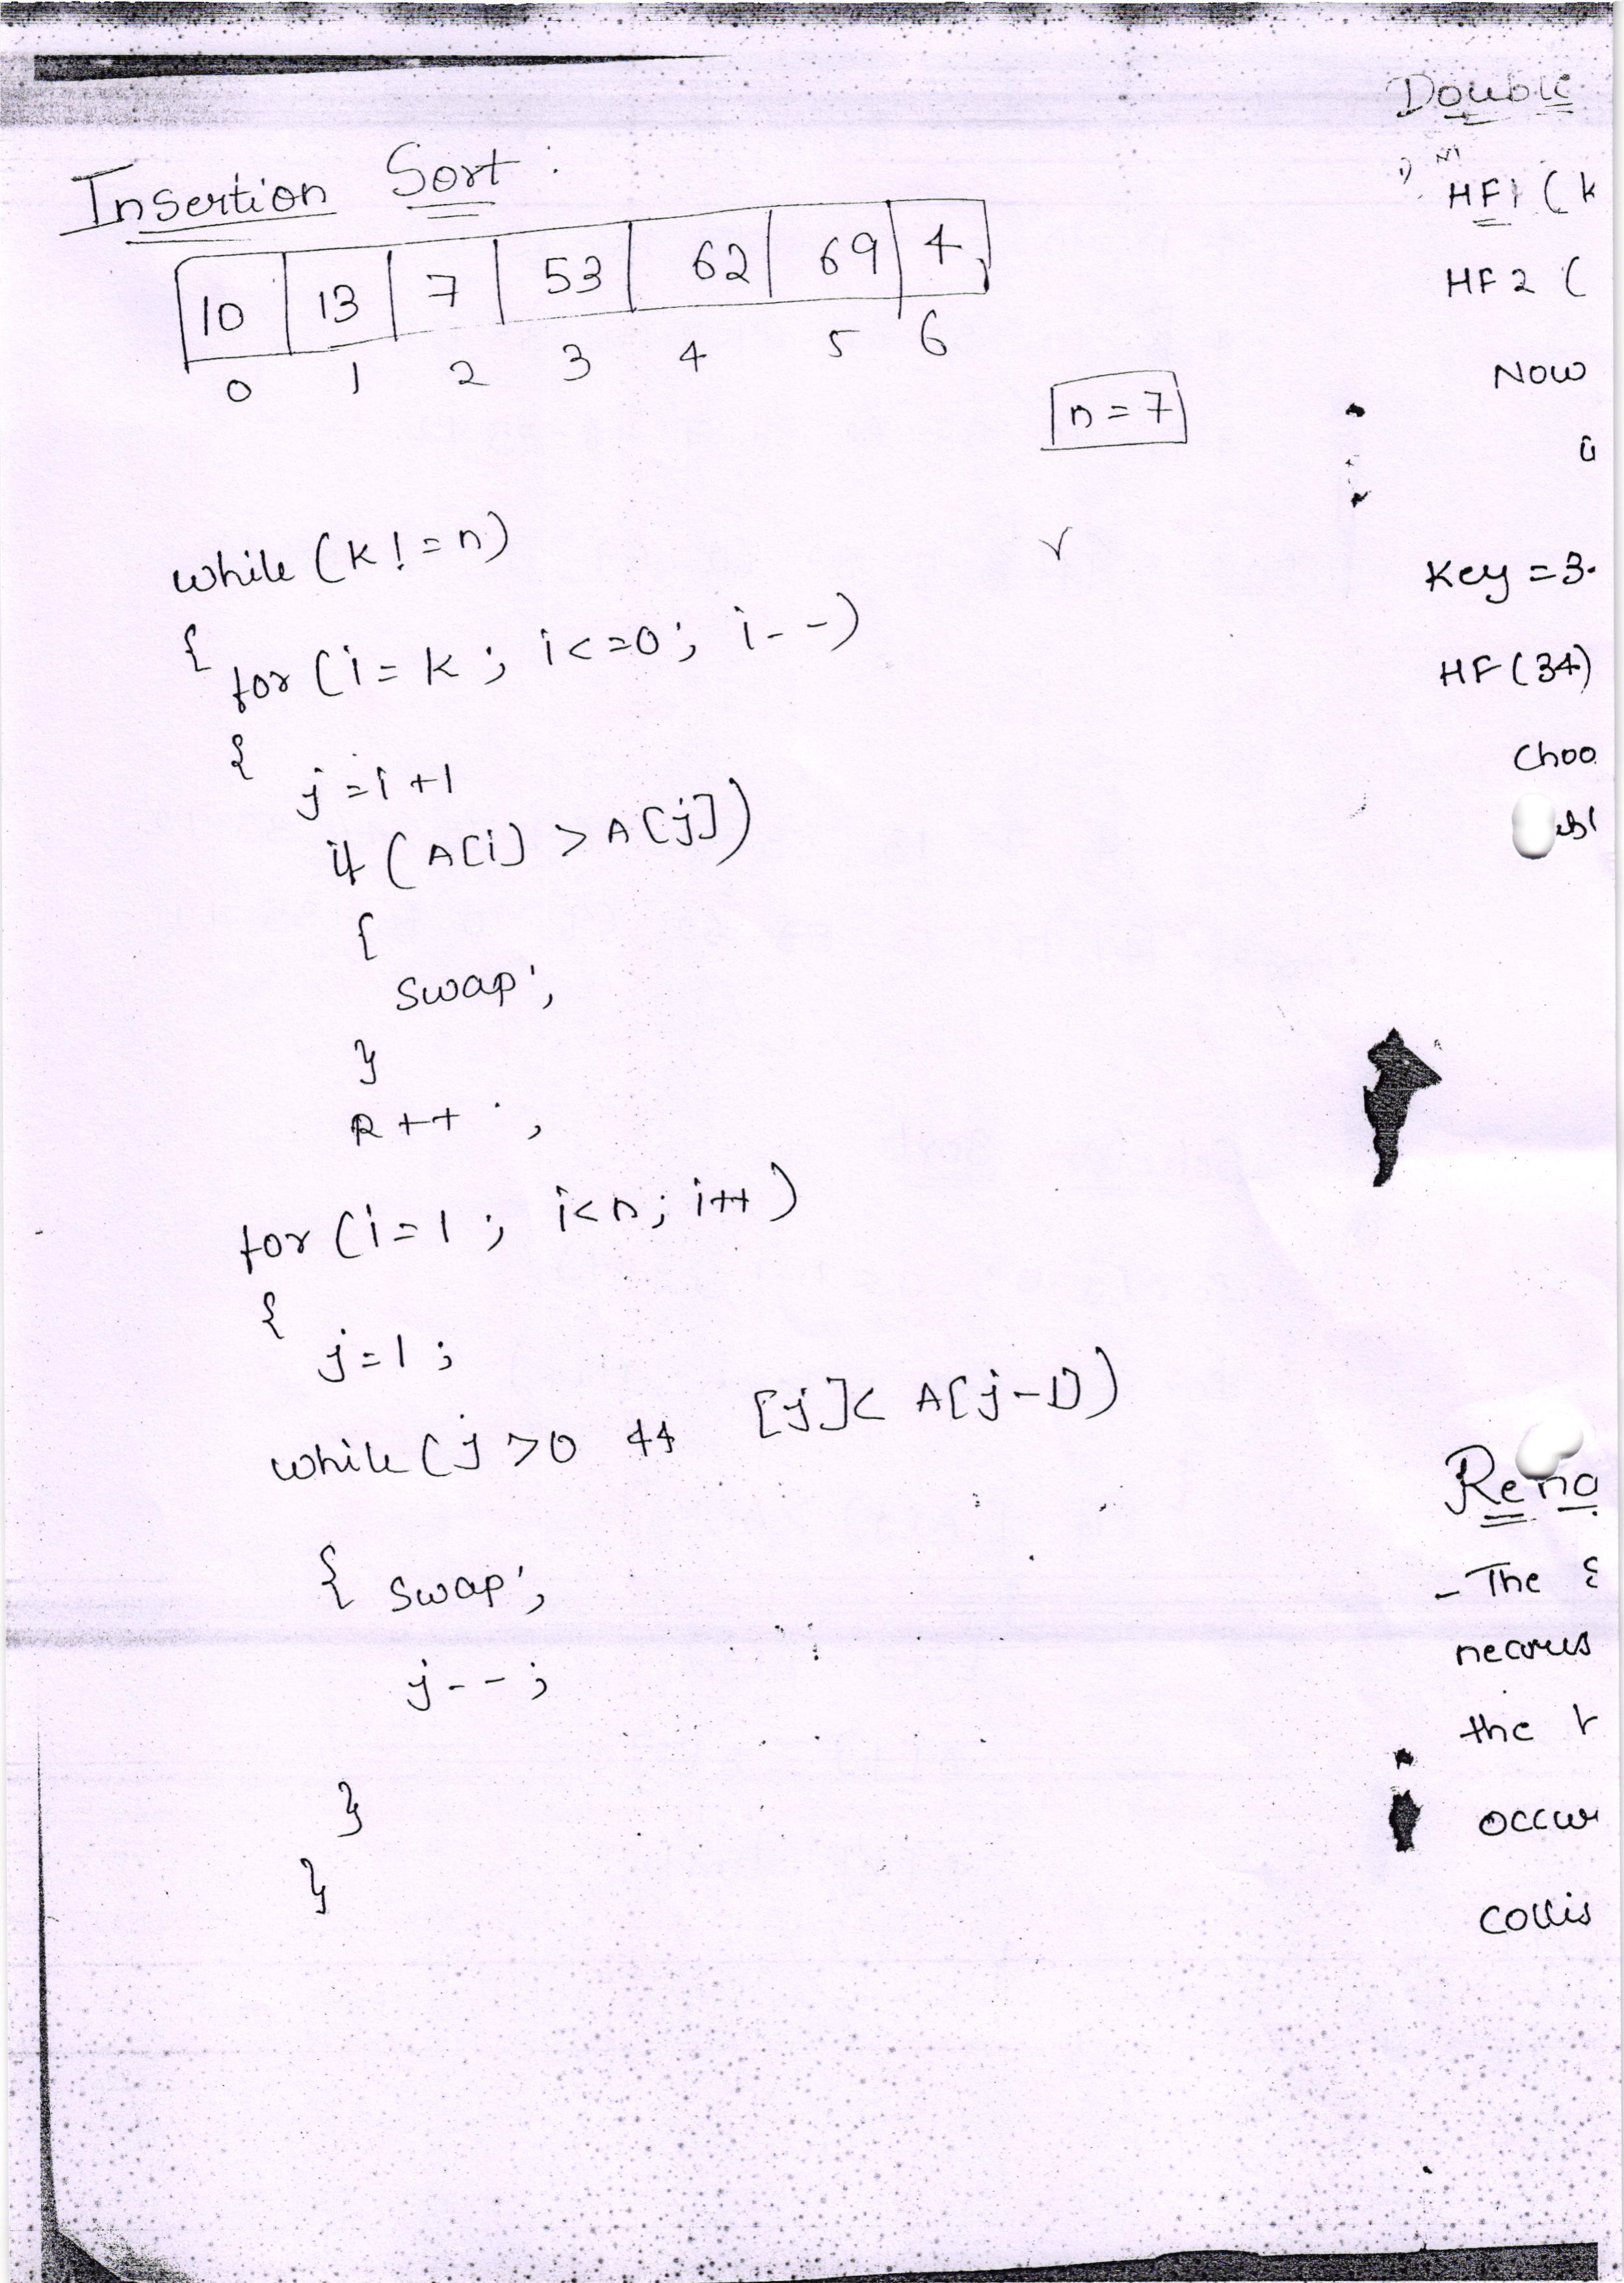 Insertion Sort :
10 13 7 53 62 69 4
0 1 2 3 4 5 6
n = 7
while (k != n)
{
for (i = k ; i <= 0 ; i - -)
{
j = i + 1
if (A[i] > A[j])
{
Swap ;
}
k ++ ;
for (i = 1 ; i < n ; i++)
{
j = 1 ;
while (j > 0 && [j] < A[j-1])
{ Swap ;
j - - ;
}
}
Double
1)
HF1 (k
HF2 (
Now
Key = 3
HF (34)
Choo
Rena
- The
the
occur
collis